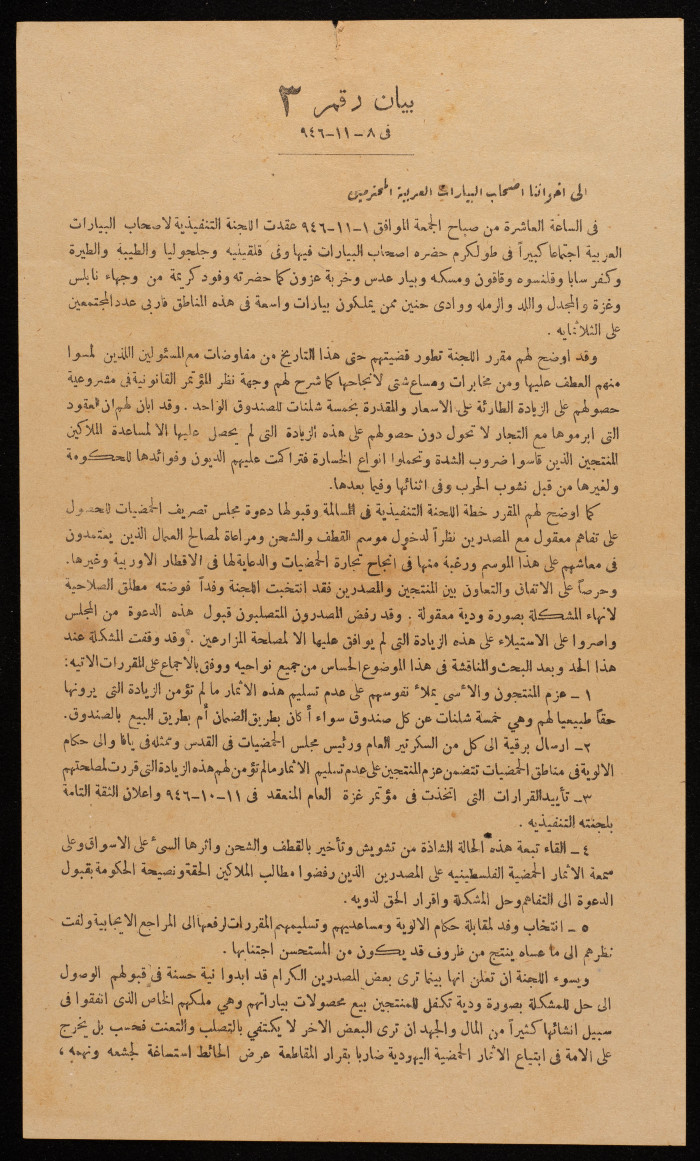 بيان رقم ٣
فى ٨-١١-٩٤٦
الى اخواننا اصحاب البيارات العربية المحترمين
فى الساعة العاشرة من صباح الجمعة الموافق ١-١١-٩٤٦ عقدت اللجنة التنفيذية لاصحاب البيارات
العربية اجتماعا كبيراً فى طولكرم حضره اصحاب البيارات فيها وفى قلقيليه وجلجوليا والطيبة والطيرة
وكفر سابا وقلنسوه وقاقون ومسكه وبيار عدس وخربة عزون كما حضرته وفود كريمة من وجهاء نابلس
وغزة والمجدل واللد والرمله ووادى حنين ممن يملكون بيارات واسعة فى هذه المناطق فاربى عدد المجتمعين
على الثلاثمايه .
وقد اوضح لهم مقرر اللجنة تطور قضيتهم حتى هذا التاريخ من مفاوضات مع المسئولين اللذين لمسوا
منهم العطف عليها ومن مخابرات ومساع شتى لانجاحها كما شرح لهم وجهة نظر المؤتمر القانونية فى مشروعية
حصولهم على الزيادة الطارئة على الاسعار والمقدرة بخمسة شلنات للصندوق الواحد . وقد ابان لهم ان العقود
التى ابرموها مع التجار لا تحول دون حصولهم على هذه الزيادة التى لم يحصل عليها الا لمساعدة الملاكين
المنتجين الذين قاسوا ضروب الشدة وتحملوا انواع الخسارة فتراكمت عليهم الديون وفوائدها للحكومة
ولغيرها من قبل نشوب الحرب وفى اثنائها وفيما بعدها.
كما اوضح لهم المقرر خطة اللجنة التنفيذية فى المسالمة وقبولها دعوة مجلس تصريف الحمضيات للحصول
على تفاهم معقول مع المصدرين نظراً لدخول موسم القطف والشحن ومراعاة لمصالح العمال الذين يعتمدون
فى معاشهم على هذا الموسم ورغبة منها فى انجاح تجارة الحمضيات والدعاية لها فى الاقطار الاوربية وغيرها.
وحرصاً على الاتفاق والتعاون بين المنتجين والمصدرين فقد انتخبت اللجنة وفداً فوضته مطلق الصلاحية
لانهاء المشكلة بصورة ودية معقولة . وقد رفض المصدرون المتصلبون قبول هذه الدعوة من المجلس
واصروا على الاستيلاء على هذه الزيادة التى لم يوافق عليها الا لمصلحة المزارعين . وقد وقفت المشكلة عند
هذا الحد وبعد البحث والمناقشة فى هذا الموضوع الحساس من جميع نواحيه ووفق بالاجماع على المقررات الاتيه :
١ - عزم المنتجون والاسى يملأ نفوسهم على عدم تسليم هذه الاثمار ما لم تؤمن الزيادة التى يرونها
حقاً طبيعيا لهم وهي خمسة شلنات عن كل صندوق سواء أكان بطريق الضمان أم بطريق البيع بالصندوق.
٢- ارسال برقية الى كل من السكرتير العام ورئيس مجلس الحمضيات فى القدس وممثله فى يافا والى حكام
الالوية فى مناطق الحمضيات تتضمن عزم المنتجين على عدم تسليم الاثمار مالم تؤمن لهم هذه الزيادة التى قررت لمصلحتهم
٣- تأييد القرارات التى اتخذت فى مؤتمر غزة العام المنعقد فى ١١-١٠-٩٤٦ واعلان الثقة التامة
بلجنته التنفيذيه .
٤ - القاء تبعة هذه الحالة الشاذة من تشويش وتأخير بالقطف والشحن واثرها السىء على الاسواق وعلى
سمعة الاثمار الحمضية الفلسطينيه على المصدرين الذين رفضوا مطالب الملاكين الحقة ونصيحة الحكومة بقبول
الدعوة الى التفاهم وحل المشكلة واقرار الحق لذويه .
٥ - انتخاب وفد لمقابلة حكام الالوية ومساعديهم وتسليمهم المقررات لرفعها الى المراجع الايجابية ولفت
نظرهم الى ما عساه ينتج من ظروف قد يكون من المستحسن اجتنابها .
ويسوء اللجنة ان تعلن انها بينما ترى بعض المصدرين الكرام قد ابدوا نية حسنة فى قبولهم الوصول
الى حل للمشكلة بصورة ودية تكفل للمنتجين بيع محصولات بياراتهم وهي ملكهم الخاص الذى انفقوا فى
سبيل انشائها كثيراً من المال والجهد ان ترى البعض الاخر لا يكتفي بالتصلب والتعنت فحسب بل يخرج
على الامة فى ابتياع الاثمار الحمضية اليهودية ضاربا بقرار المقاطعة عرض الحائط استساغة لجشعه ونهمه ،